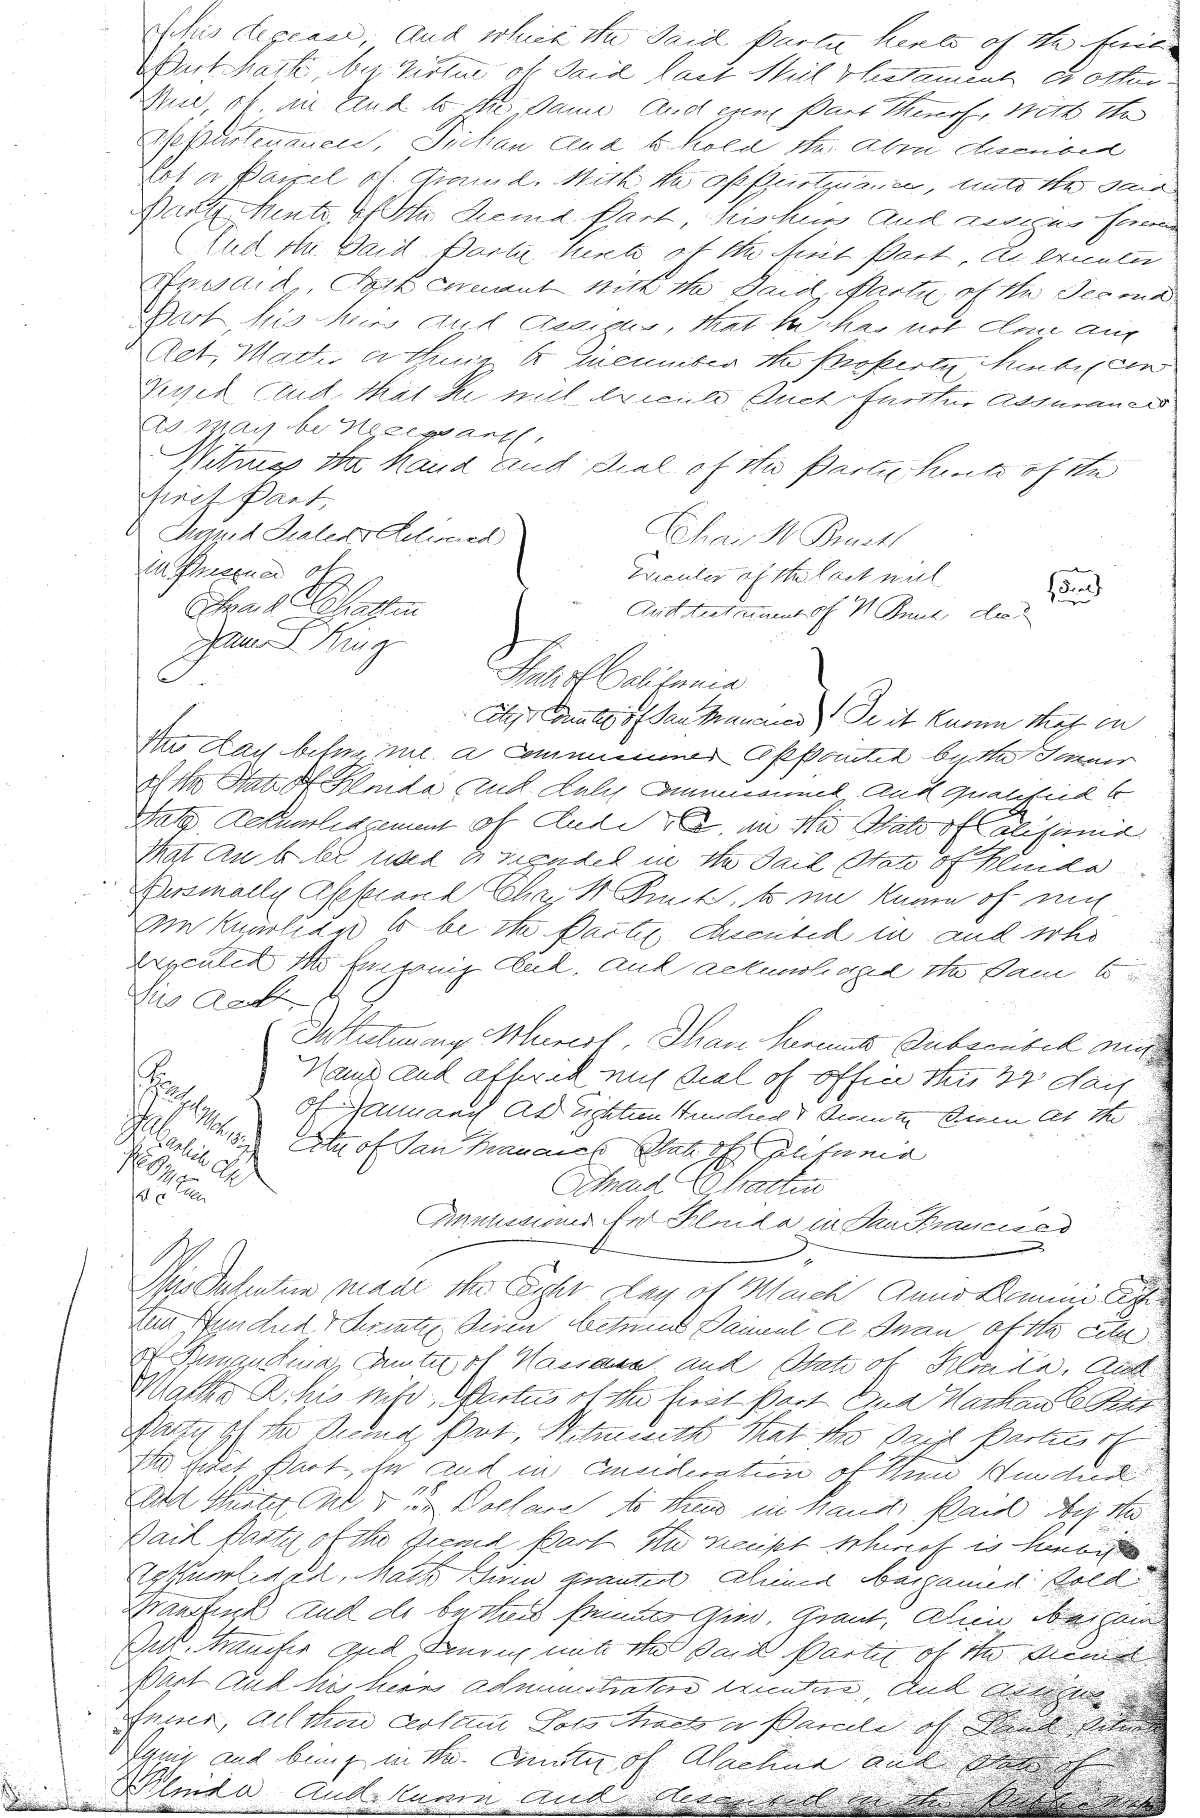 of his decease, and which the said party hereto of the first
part hath, by virtue of said last Will & testament or other-
wise, of, in and to the same and every part thereof, with the
appurtenances, To have and to hold the above described
lot or parcel of ground, with the appurtenances, unto the said
party hereto, of the second part, his heirs and assigns forever
And the said party hereto of the first part, as executor
aforesaid, doth covenant with the said party of the second
part, his heirs and assigns, that he has not done any
act, matter or thing to incumber the property hereby con
veyed and that he will execute such further assurances
as may be necessary.
Witness the hand and seal of the party hereto of the
first part,
Signed Sealed & delivered
in presence of
James L King
Chas W Brush
Executor of the last will
and testament of N Brush decd
(Seal)
State of California
City & County of San Francisco } Be it known that on
this day before me a commissioner appointed by the Governor
of the State of Florida and duly commissioned and qualified to
take acknowledgement of deeds &c. in the State of California
that are to be used or recorded in the said State of Florida
personally appeared Chas W Brush, to me known of my
own knowledge to be the party described in and who
executed the foregoing deed, and acknowledged the same to
his act.
In testimony whereof, I have hereunto subscribed my
Name and affixed my seal of office this 22d day
of January AD Eighteen Hundred & Seventy Seven at the
City of San Francisco State of California
Commissioner for Florida in San Francisco
This Indenture made the Eight day of March Anno Domini Eigh
teen Hundred & Seventy Seven between Samuel A Swan of the City
of Fernandina, County of Nassau and State of Florida, and
Martha R. his wife, parties of the first part and Nathan C
party of the second part, Witnesseth that the said parties of
the first part, for and in consideration of Hundred
and thirty one & Dollars to them in hand paid by the
said party of the second part the receipt whereof is hereby
acknowledged, hath given granted aliened bargained sold
transferred and do by these presents give, grant, alien bargain
sell, transfer and convey unto the said party of the second
part and his heirs administrators executors, and assigns
forever, all those certain Lots tracts or parcels of Land situate
lying and being in the County of Alachua and State of
Florida and known and described in the